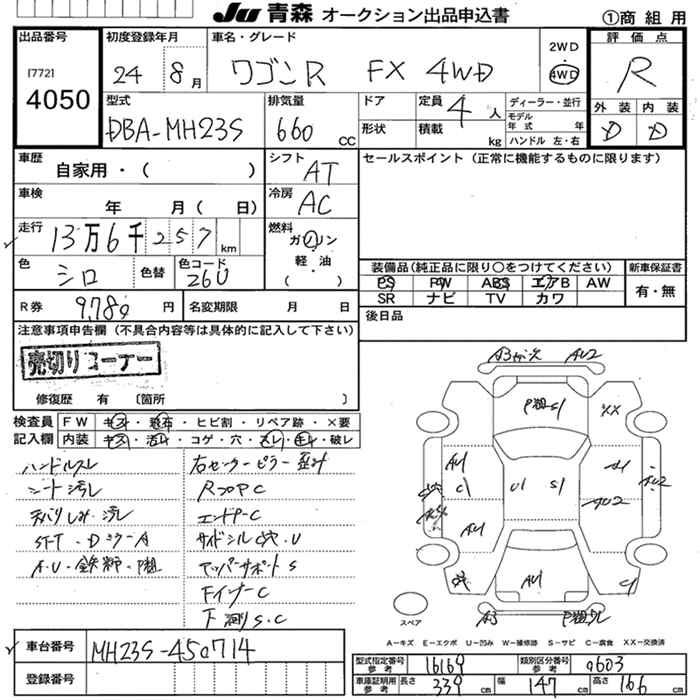 JU 青森 オークション出品申込書 ①商組用
出品番号 初度登録年月 車名・グレード 2WD 評価点
[772] 24年 8月 ワゴンR FX 4WD 4WD R
4050 型式 排気量 ドア 定員 4人 ディーラー・並行 外装 内装
DBA-MH23S 660cc 形状 積載 kg モデル年式 年 ハンドル 左・右 D D
車歴 自家用・( ) シフト AT セールスポイント(正常に機能するものに限ります)
車検 年 月( 日) 冷房 AC
走行 13万6千257km 燃料 ガソリン
軽・油
( )
色 シロ 色替 色コード 26U 装備品(純正品に限り○をつけてください) 新車保証書
PS PW ABS エアB AW 有・無
R券 9,780円 名変期限 月 日 SR ナビ TV カワ
注意事項申告欄(不具合内容等は具体的に記入して下さい) 後日品
売切りコーナー
修復歴 有 〔箇所 〕
検査員 FW キズ・飛石・ヒビ割・リペア跡・×要
記入欄 内装 キズ・汚れ・コゲ・穴・スレ・キレ・破レ
ハンドルスレ 右センターピラー歪み
シート汚レ RフロアC
天バリしみ・汚レ エンドP-C
ST-T・Dミラー-A サイドシルC穴・U
A・U・鉄粉・P粗 アッパーサポートS
FインナーC
下廻りS・C
A3 AU2
P粗 S1
XX
AU1 C1 U1 S1 A1 AU2
AU2
AU1
AU1 C1
A3
スペア
A-キズ E-エクボ U-凹み W-補修跡 S-サビ C-腐食 XX-交換済
車台番号 MH23S-450714
登録番号
型式指定番号 参考 16169 類別区分番号 参考 0603
車庫証明用 参考 長さ 339cm 幅 147cm 高さ 166cm